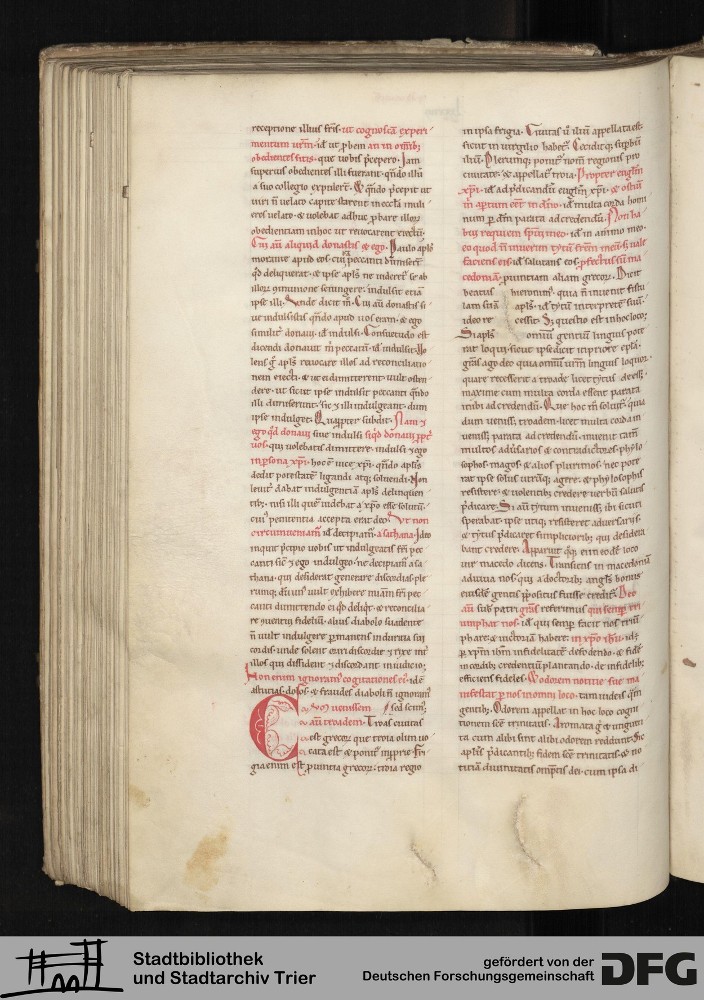 receptione illius fr̄is. ut cognoscā experi
mentum urm̄. id ē ut ꝓbem an in om̄ib;
obedientes sitis. que uobis p̄cepero. Iam
superius obedientes illi fuerant. qn̄do illū
a suo collegio expulert̄. & qn̄do p̄cepit ut
uiri n̄ uelato capite starent in eccl̄a muli
eres uelato. & uolebat adhuc ꝓbare illoꝝ
obedientiam in hoc ut reuocarent
Cui au͞ aliquid donastis & ego. Paulo apl̄s
morante apud eos. cui peccanti
qd̄ deliquerat. & ipse apl̄s ne uideret᷑ se ab
illoꝝ ɔmunione seiungere. indulsit etiā
ipse illi. Unde dicit m̄. Cui au͞ donastis si
ue indulsistis qn̄do apud uos eram. & ego
similit᷑ donaui. id ē indulsi. Consuetudo est
dicendi donauit m̄ peccatū. id ē indulsit. Uo
lens g̊ apl̄s reuocare illos ad reconciliatio
nem eiecti. & ut ei dimitterent uult osten
dere. ut sicut ipse indulsit peccanti qn̄do
illi dimiserunt. sic & illi indulgeant. dum
ipse indulget. Quapꝓpter subdit. Nam &
ego qd̄ donaui siue indulsi siqd̄ donaui ꝓpt᷑
uos. qui uolebatis dimittere. indulsi & ego
in ꝑsona xp̄i. hoc ē uice xp̄i. qn̄do apl̄is
dedit potestatē ligandi atq; soluendi. Non
leuit᷑ dabat indulgentiā apl̄s delinquen
tib;. nisi illi quē uidebat a xp̄o esse solutū.
cui᷒ penitentia accepta erat deo. Ut non
circumueniam̄. id ē decipiam̄. a sathana. Ideo
inquit p̄cipio uobis ut indulgeatis fr̄i pec
canti sic & ego indulgeo. ne decipiam̄ a sa
thana. qui desiderat generare discordias. ple
runq; du͞ un᷒ uult exhibere miām fr̄i pec
canti dimittendo ei qd̄ deliqt̄. & reconcilia
re ɔuentui fidelium. alius diabolo suadente
n̄ uult indulgere ꝑmanens in duritia sui
cordis. unde solent oriri discordie
illos qui dissident & discordant in iudicio.
Non enim ignoram᷒ cogitationes ei᷒. id ē
astutias. dolos. & fraudes diaboli n̄ ignoram᷒
Cum uenissem sed scim᷒.
au͞ troadem. Troas ciuitas
est grecoꝝ que troia olim uo
cata est. & ponit᷑ inꝓprie. Fri
gia enim est ꝓuintia grecoꝝ. troia regio
in ipsa frigia. Ciuitas u͞ iliu͞ appellata est.
sicut in uirgilio habet᷑. Ceciditq; suꝑbu͞
iliu͞. Plerunq; ponit᷑ nom̄ regionis pro
ciuitate. & appellat᷑ troia. Propter eugl̄m
xp̄i. id ē ad p̄dicandu͞ eugl̄m xp̄i. & ostiu͞
m̄ aptum eēt in dn̄o. id ē multa corda homi
num ꝑ dn̄m parata ad credendu͞. Non ha
bui requiem spū͞i meo. id ē in animo meo.
eo quod n̄ inuenim tytu͞ fr̄em meū. s; uale
faciens eis. id ē salutans eos. ꝓfectus su͞ ma
cedoniā. ꝓuintiam aliam grecoꝝ. Dicit
beatus hieronim᷒. quia n̄ inuenit
latu͞ suu͞ apl̄s. id ē tytu͞ int᷑pretē suu͞.
ideo re cessit. S; questio est in hoc loco;
Si apl̄s omniu͞ gentium linguis pote
rat loqui. sicut ipse dicit in priore epl̄a.
grās ago deo quia omniu͞ urm̄ linguis loquor.
quare recesserit a troade licet tytus deesset.
maxime cum multa corda essent parata
inibi ad credendu͞. Que hoc m̄ soluit᷑. quia
dum uenisset troadem. licet multa corda in
uenisset parata ad credendu͞. inuenit tam̄
multos adu᷑sarios & contradictores. phylo
sophos. magos. & alios plurimos. nec pote
rat ipse solus utruq; agere. & phylosophis
resistere. & uolentib; credere uerbu͞ salutis
p̄dicare. Si au͞ tytum inuenisset ibi sicuti
sperabat. ipse utiq; resisteret aduersariis.
& tytus p̄dicaret simplicioribus qui desidera
bant credere. Apparuit q̊q; ei in eode͞ loco
uir macedo dicens. Transiens in macedoniā
adiuua nos. qui a doctorib; angl̄s bonus
eiusde͞ gentis ꝓpositus fuisse credit᷑. Deo
au͞ sūb patri grās referimus qui semꝑ tri
umphat nos. id ē qui semꝑ facit nos triu͞
phare. & uictoriā habere. in xp̄o ih̄u. id ē
ꝑ xp̄m ih̄m infidelitatē destruendo. & fide͞
in cordib; credentiu͞ plantando. de infidelib;
efficiens fideles. & odorem notitie sue ma
nifestat ꝑ nos in omni loco. tam iudeis qua͞
gentib;. Odorem appellat in hoc loco cogni
tionem scē trinitatis. Aromata g̊ & unguen
ta cum alibi sint alibi odorem reddunt. Sic
apl̄is p̄dicantib; fidem scē trinitatis. & no
titiā diuinitatis omp̄tis dei. cum ipsa di
Stadtbibliothek
und Stadtarchiv Trier
gefördert von der
Deutschen Forschungsgemeinschaft
DFG